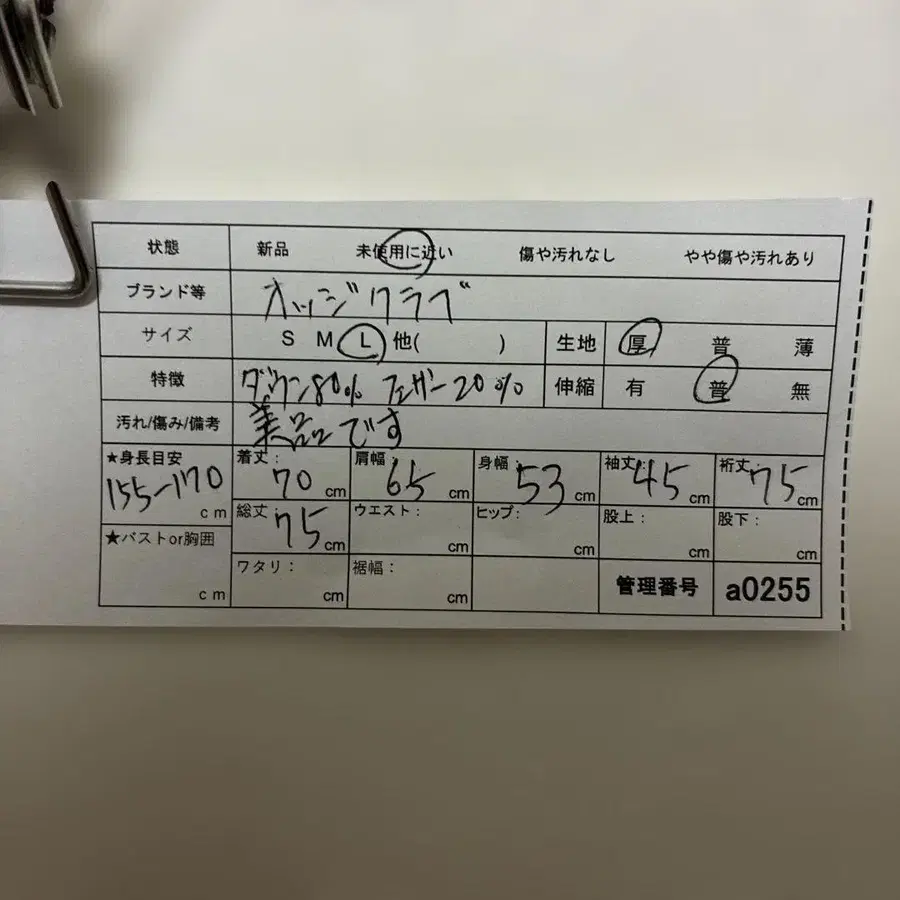 状態 新品 未使用に近い 傷や汚れなし やや傷や汚れあり
ブランド等 オッジクラブ
サイズ S M L 他( ) 生地 厚 普 薄
特徴 ダウン80% フェザー20% 伸縮 有 普 無
汚れ/傷み/備考 美品です
★身長目安 155-170 cm 着丈: 70 cm 肩幅: 65 cm 身幅: 53 cm 袖丈: 45 cm 裄丈: 75 cm
総丈: 75 cm ウエスト: cm ヒップ: cm 股上: cm 股下: cm
★バストor胸囲 cm ワタリ: cm 裾幅: cm 管理番号 a0255